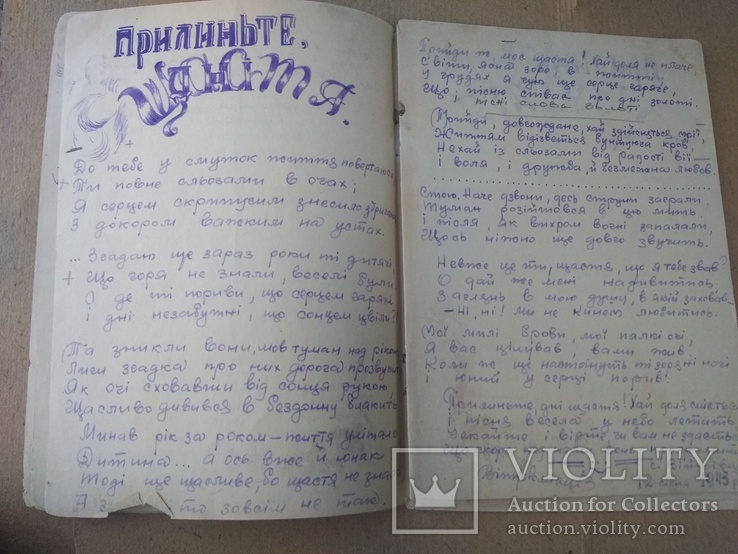 Прилиньте,
дні
щастя.
До тебе у смуток життя повертаюсь
Ти повне сльозами в очах;
Я серцем скрипучим знесило
З докором важким на устах.
... Згадаю ще зараз роки ті дитячі,
Що горя не знали, веселі були
О де ті пориви, що серцем гарячі
і дні незабутні, що сонцем цвіли?
Та зникли вони, мов туман над рікою
Лиш згадка про них дорога
Як очі сховавши від сонця рукою,
Щасливо дивився в бездонну блакить.
Минав рік за роком – життя
Дитина... а ось вже й юнак
Тоді ще щасливе, бо щастя не
А то зовсім не так.
Прийди ж, моє щастя! Хай доля не плаче,
Світи, ясна зоре, в житті
У грудях я чую ще серце гаряче,
Що пісню співає про дні золоті.
і ясні слова
Прийди, довгождане, хай здійсняться мрії,
Життям відізветься бунтуюча кров,
Нехай із сльозами від радості вії –
і воля, і дружба, й безмежна любов.
Стою. Наче дзвони, десь струни заграли
Туман розійшовся в цю мить
і пісня, як вихром вогні запалали,
Щось ніжно ще довго звучить.
Невже це ти, щастя, що я тебе звав?
О дай же мені надивитись,
Заглянь в мою душу, в якій заховав
– Ні, ні! Ми не кинем любитись.
Мої милі брови, мої палкі очі,
Я вас цілував, вами жив.
Коли ж ще настануть ті зоряні ночі
і юний у серці порив!
Прилиньте, дні щастя! Хай доля сміється
і пісня весела у небо летить
Чекайте і вірте, чи вам не здасться
1943 р.
VIOLITY
Auction for Collectors
auction.violity.com